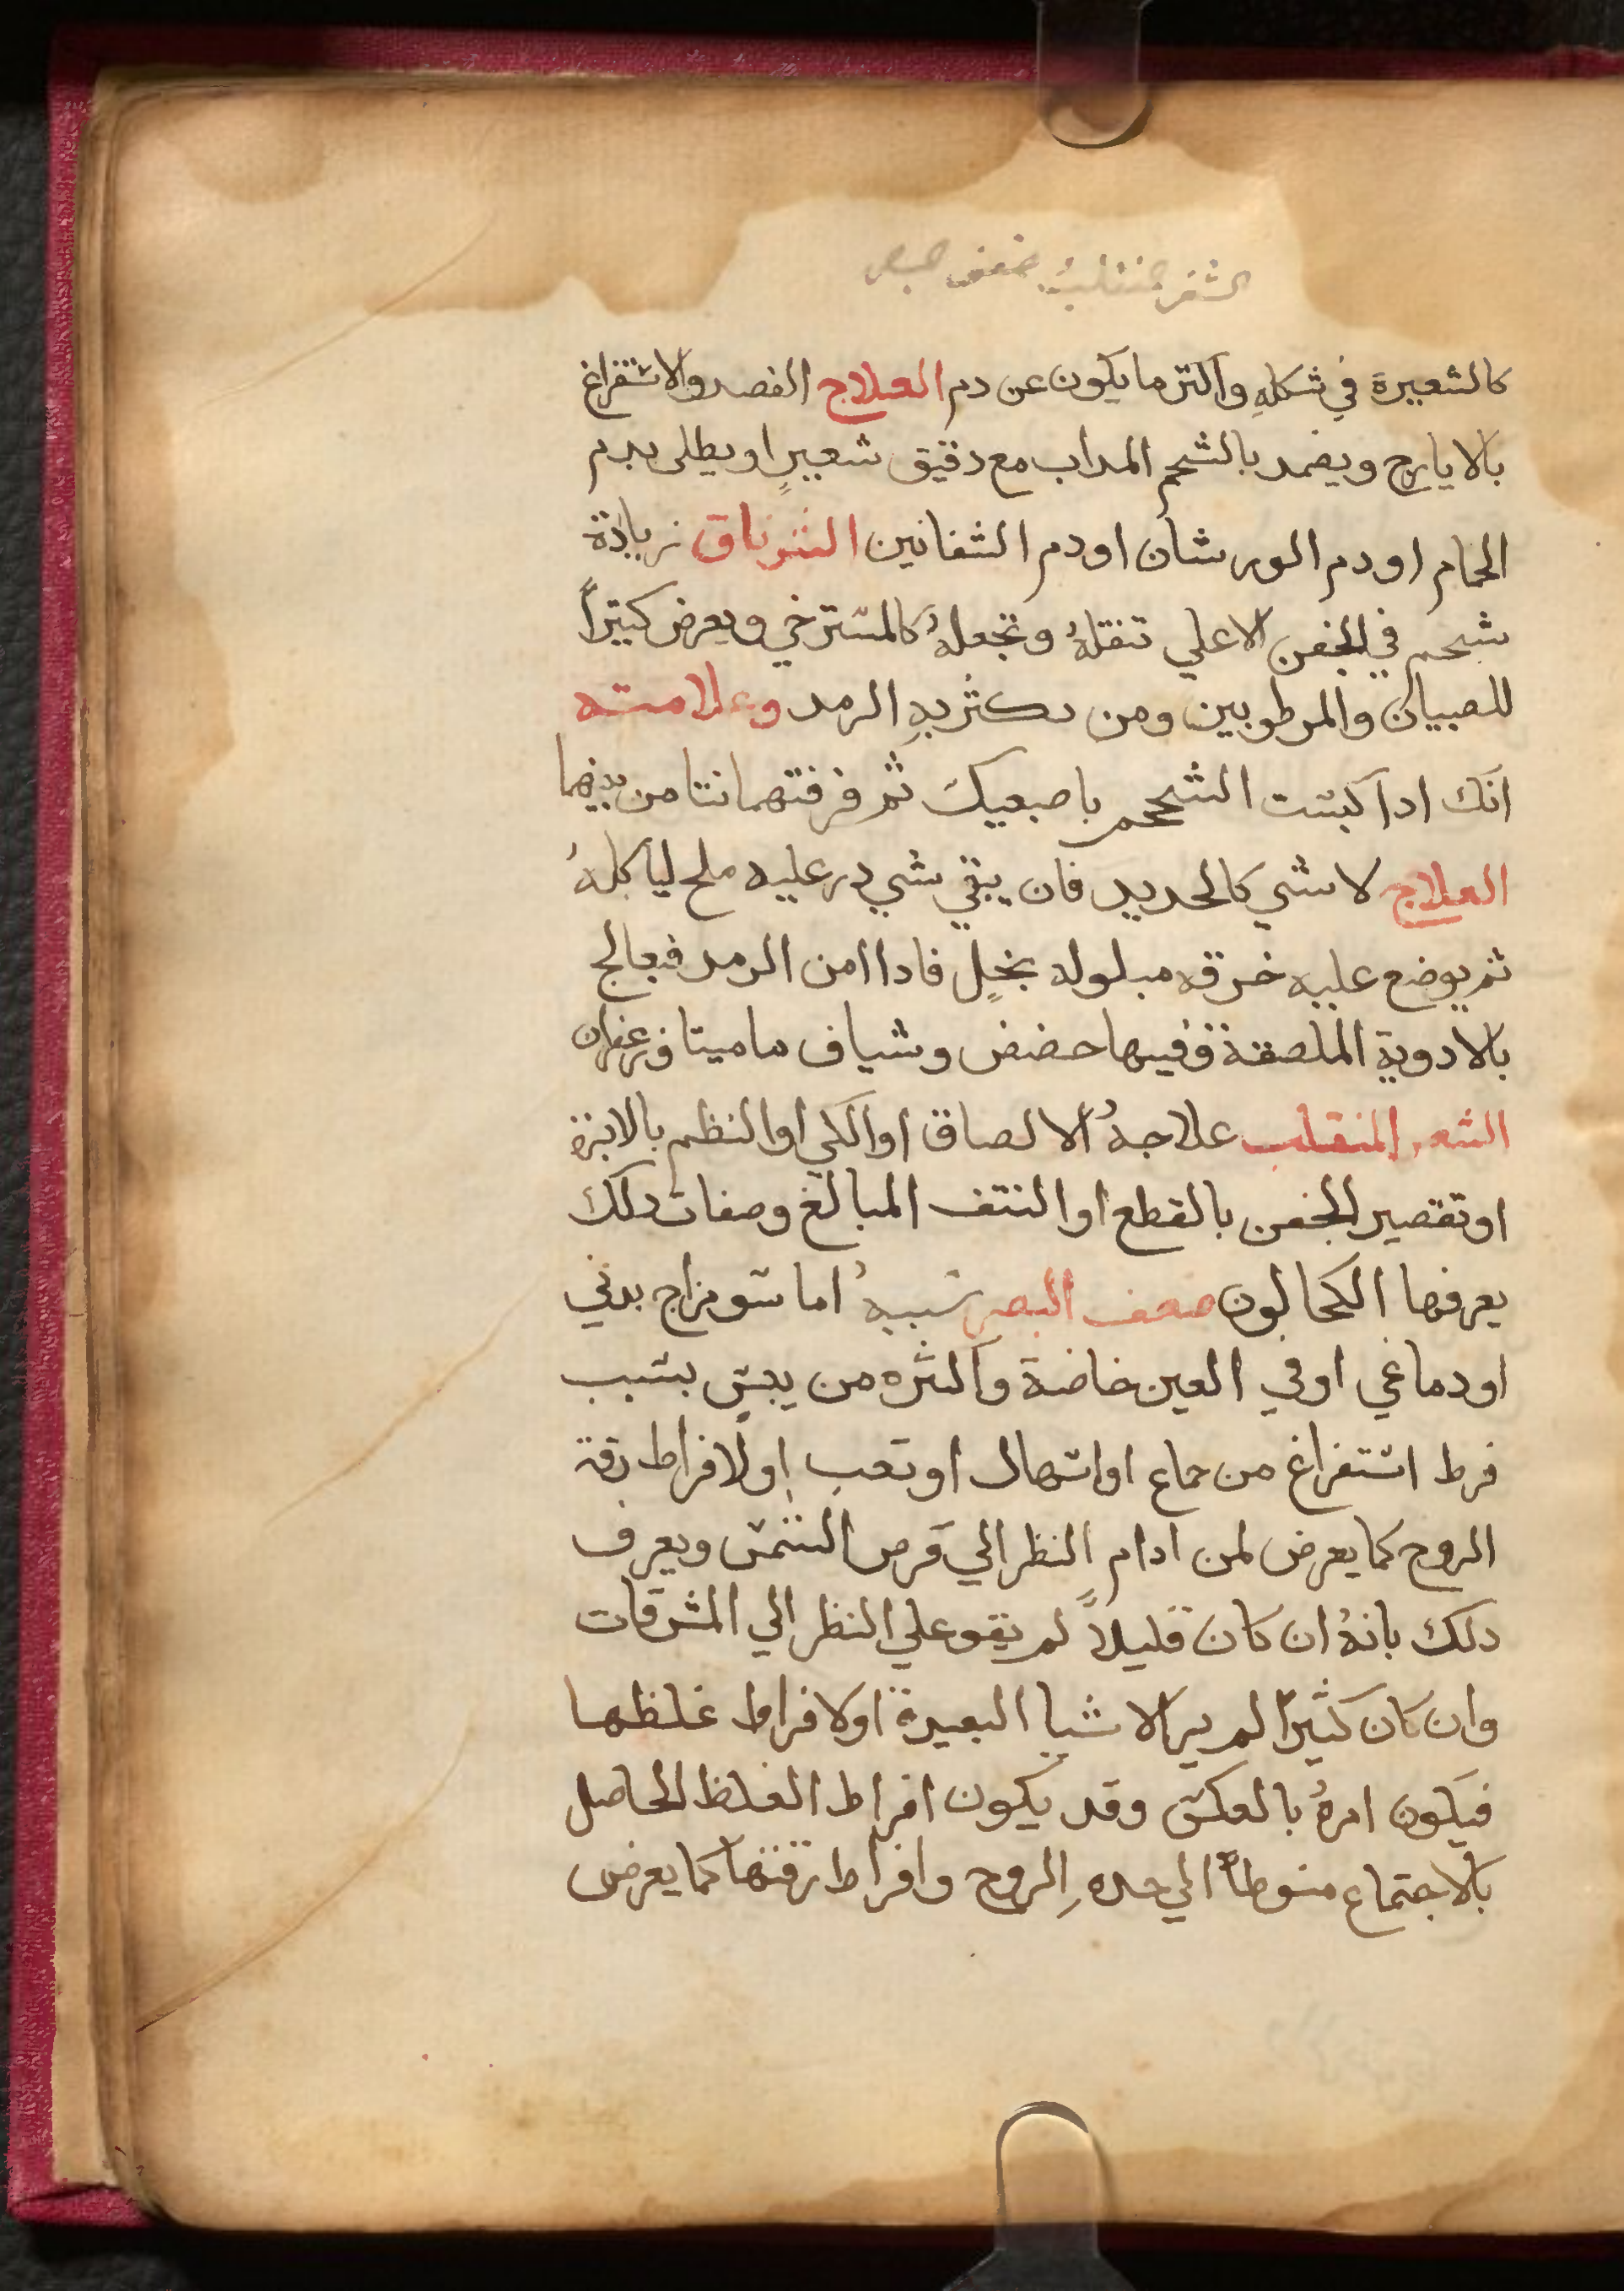 كالشعيرة في شكلهِ واكتر ما يكون عن دم العلاج الفصد والاستفراغ
بالايارج ويضمد بالشحم المداب مع دقيق شعيرٍ او يطلى بدم
الحمام اودم الورشان اودم الشفانين الشرناق زيادة
شحم في الجفن الاعلي تثقلهُ وتجعلهُ كالمسترخي ويعرض كتيراً
للصبيان والمرطوبين ومن يكثر بهِ الرمد وعلامته
انك ادا كبست الشحم باصبعيك ثم فرقتهما نتا من بينهما
العلاج لا شي كالحديد فان يبقي شي در عليه ملح لياكلهُ
ثم يوضع عليه خرقه مبلوله بخلٍ فادا امن الرمد فيعالج
بالادوية الملصقة وفيها حضض وشياف ماميتا وزعفران
الشعر المنقلب علاجهُ الالصاق او الكي او النظم بالابرة
او تقصير الجفن بالقطع او النتف المبالغ وصفات دلك
يعرفها الكحالون ضعف البصر سببهُ اما سو مزاج بدني
او دماغي او في العين خاصة واكثره من يبس بسبب
فرط استفراغ من جماع او اسهال او تعب او لافراط رقة
الروح كما يعرض لمن ادام النظر الي قرص الشمس ويعرف
دلك بانهُ ان كان قليلاً لم يقو علي النظر الي المشرقات
وان كان كثيراً لم ير الاشيا البعيدة او لافراط غلظها
فيكون امرهُ بالعكس وقد يكون افراط الغلظ الحاصل
بالاجتماع منوطاً الي حده الروح وافراط رقتها كما يعرض